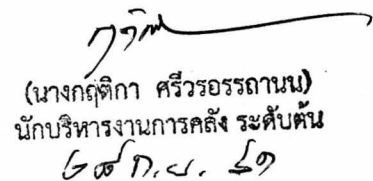 (นางกฤติกา ศรีวรอรรถานน)
นักบริหารงานการคลัง ระดับต้น
ก.ย. ๖๑